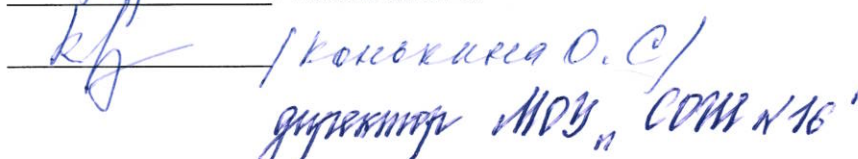 /Конькина О.С/
директор МОУ „СОШ №16"